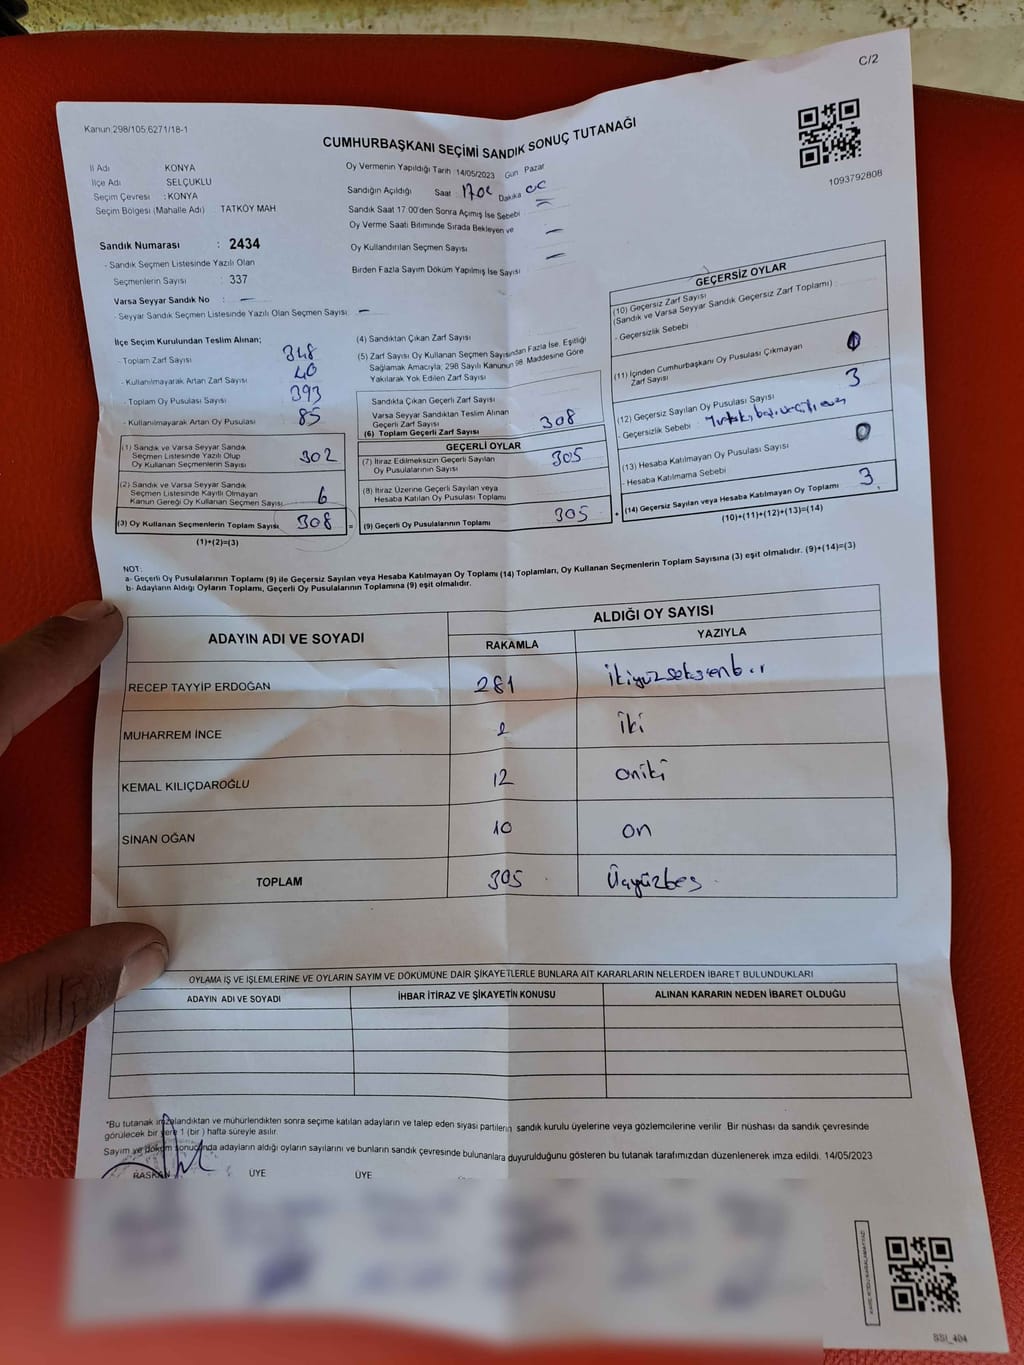 C/2
Kanun:298/105;6271/18-1
CUMHURBAŞKANI SEÇİMİ SANDIK SONUÇ TUTANAĞI
1093792808
İl Adı KONYA
İlçe Adı SELÇUKLU
Seçim Çevresi : KONYA
Seçim Bölgesi (Mahalle Adı) TATKÖY MAH
Sandık Numarası : 2434
- Sandık Seçmen Listesinde Yazılı Olan
Seçmenlerin Sayısı : 337
Varsa Seyyar Sandık No : –
- Seyyar Sandık Seçmen Listesinde Yazılı Olan Seçmen Sayısı: –
Oy Vermenin Yapıldığı Tarih 14/05/2023 Gün Pazar
Sandığın Açıldığı Saat Dakika
Sandık Saat 17 00'den Sonra Açımış İse Sebebi
Oy Verme Saati Bitiminde Sırada Bekleyen ve –
Oy Kullandırılan Seçmen Sayısı
Birden Fazla Sayım Döküm Yapılmış İse Sayısı –
İlçe Seçim Kurulundan Teslim Alınan;
- Toplam Zarf Sayısı 348
- Kullanılmayarak Artan Zarf Sayısı 40
- Toplam Oy Pusulası Sayısı 393
- Kullanılmayarak Artan Oy Pusulası 85
(1) Sandık ve Varsa Seyyar Sandık
Seçmen Listesinde Yazılı Olup
Oy Kullanan Seçmenlerin Sayısı 302
(2) Sandık ve Varsa Seyyar Sandık
Seçmen Listesinde Kayıtlı Olmayan
Kanun Gereği Oy Kullanan Seçmen Sayısı 6
(3) Oy Kullanan Seçmenlerin Toplam Sayısı 308 =
(1)+(2)=(3)
(4) Sandıktan Çıkan Zarf Sayısı
(5) Zarf Sayısı Oy Kullanan Seçmen Sayısından Fazla İse, Eşitliği
Sağlamak Amacıyla; 298 Sayılı Kanunun 98. Maddesine Göre
Yakılarak Yok Edilen Zarf Sayısı
Sandıkta Çıkan Geçerli Zarf Sayısı
Varsa Seyyar Sandıktan Teslim Alınan
Geçerli Zarf Sayısı
(6) Toplam Geçerli Zarf Sayısı 308
GEÇERLİ OYLAR
(7) İtiraz Edilmeksizin Geçerli Sayılan
Oy Pusulalarının Sayısı 305
(8) İtiraz Üzerine Geçerli Sayılan veya
Hesaba Katılan Oy Pusulası Toplamı
(9) Geçerli Oy Pusulalarının Toplamı 305 +
GEÇERSİZ OYLAR
(10) Geçersiz Zarf Sayısı
(Sandık ve Varsa Seyyar Sandık Geçersiz Zarf Toplamı) :
- Geçersizlik Sebebi
(11) İçinden Cumhurbaşkanı Oy Pusulası Çıkmayan
Zarf Sayısı 0
(12) Geçersiz Sayılan Oy Pusulası Sayısı 3
- Geçersizlik Sebebi
(13) Hesaba Katılmayan Oy Pusulası Sayısı 0
- Hesaba Katılmama Sebebi
(14) Geçersiz Sayılan veya Hesaba Katılmayan Oy Toplamı 3
(10)+(11)+(12)+(13)=(14)
NOT:
a- Geçerli Oy Pusulalarının Toplamı (9) ile Geçersiz Sayılan veya Hesaba Katılmayan Oy Toplamı (14) Toplamları, Oy Kullanan Seçmenlerin Toplam Sayısına (3) eşit olmalıdır. (9)+(14)=(3)
b- Adayların Aldığı Oyların Toplamı, Geçerli Oy Pusulalarının Toplamına (9) eşit olmalıdır.
ADAYIN ADI VE SOYADI ALDIĞI OY SAYISI
RAKAMLA YAZIYLA
RECEP TAYYİP ERDOĞAN 281 ikiyüzseksenbir
MUHARREM İNCE 2 iki
KEMAL KILIÇDAROĞLU 12 oniki
SİNAN OĞAN 10 on
TOPLAM 305 Üçyüzbeş
OYLAMA İŞ VE İŞLEMLERİNE VE OYLARIN SAYIM VE DÖKÜMÜNE DAİR ŞİKAYETLERLE BUNLARA AİT KARARLARIN NELERDEN İBARET BULUNDUKLARI
ADAYIN ADI VE SOYADI İHBAR İTİRAZ VE ŞİKAYETİN KONUSU ALINAN KARARIN NEDEN İBARET OLDUĞU
*Bu tutanak imzalandıktan ve mühürlendikten sonra seçime katılan adayların ve talep eden siyasi partilerin sandık kurulu üyelerine veya gözlemcilerine verilir. Bir nüshası da sandık çevresinde
görülecek bir yere 1 (bir ) hafta süreyle asılır.
Sayım ve döküm sonucunda adayların aldığı oyların sayılarını ve bunların sandık çevresinde bulunanlara duyurulduğunu gösteren bu tutanak tarafımızdan düzenlenerek imza edildi. 14/05/2023
BAŞKAN ÜYE ÜYE
SSI_404